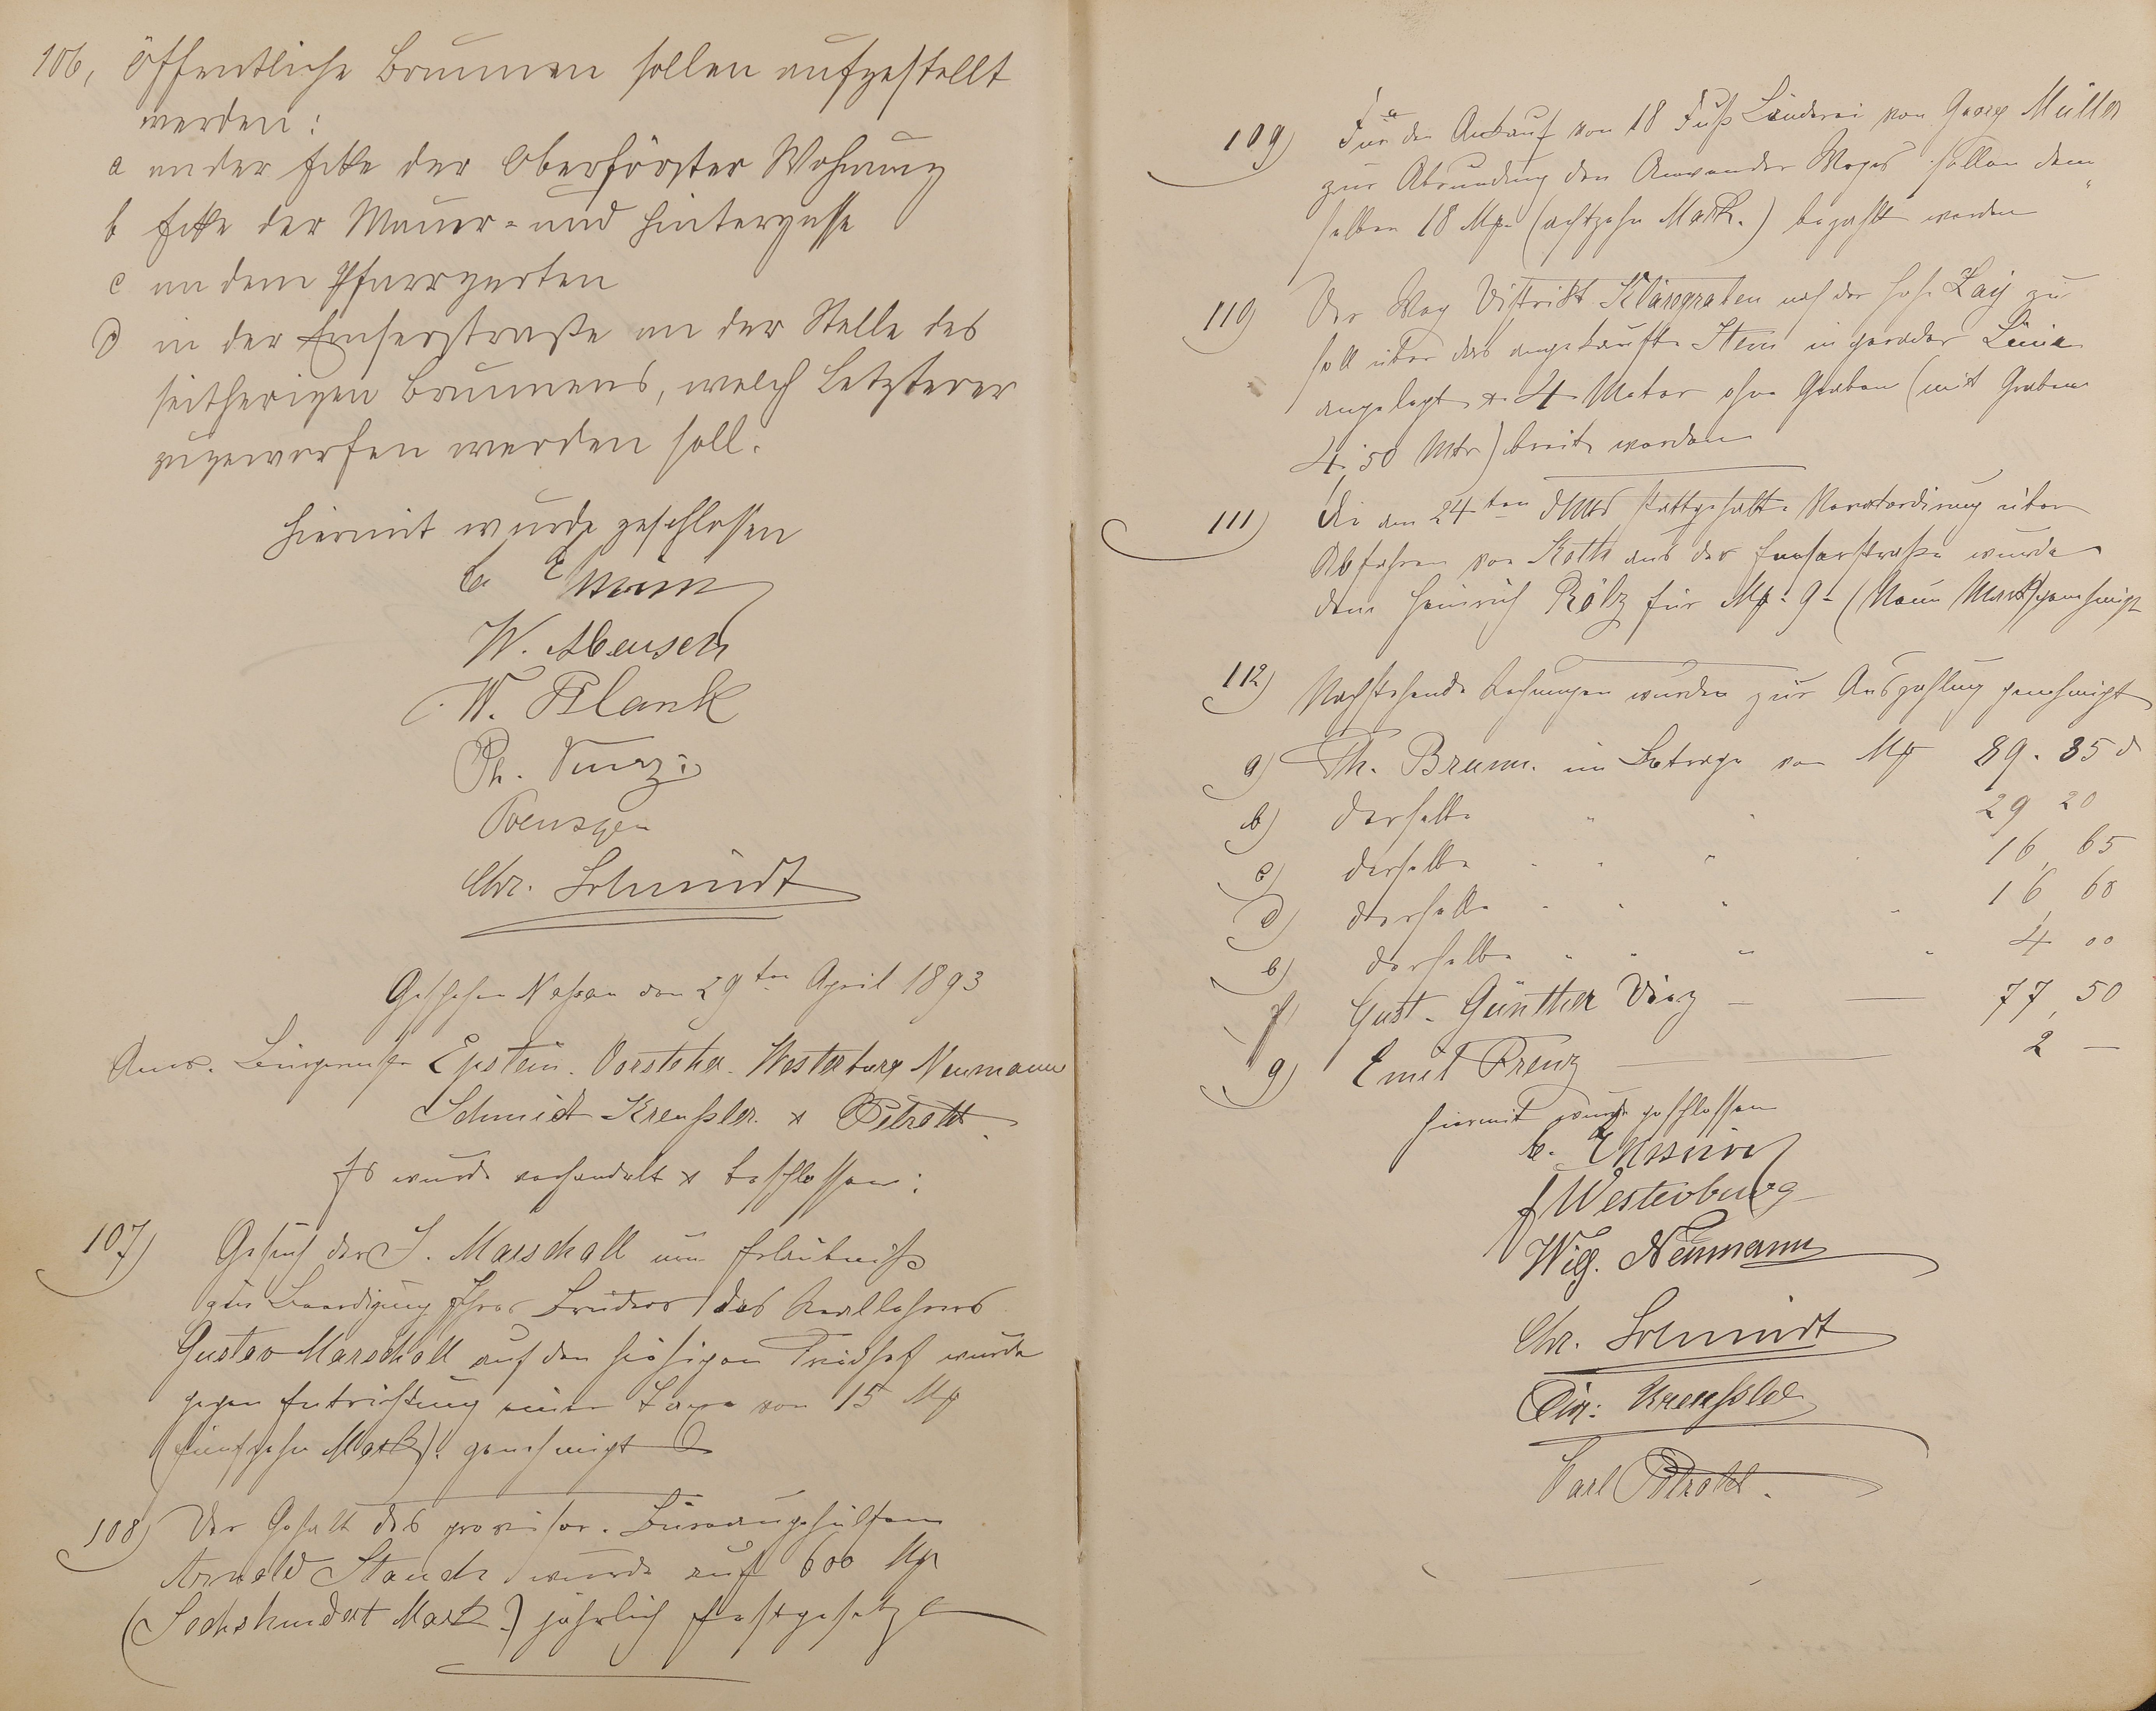 106, Öffentliche Brunnen sollen aufgestellt
werden:
a an der Ecke der Oberförster Wohnung
b Ecke der Mauer- und Hintergasse
c an dem Pfarrgarten
d in der Emserstraße an der Stelle des
seitherigen Brunnens, welch Letzterer
zugeworfen werden soll.
Hiermit wurde geschlossen
W.
W. Plank
Ph.
Poensgen
Chr. Schmidt
Geschehen Nassau den 29ten April 1893
Anw. Bürgermstr Epstein. Vorsteher. Westerburg Neumann
Schmidt Kreußler. &
Es wurde verhandelt & beschlossen:
107) Gesuch der J. Marschall um Erlaubniß
zur Beerdigung Ihres Bruders des Reallehrers
Gustav Marschall auf den hiesigen Friedhof wurde
gegen Entrichtung einer Taxe von 15 Mk
(fünfzehn Mark). genehmigt
108) Der Gehalt des provisor. Bureaugehülfen
Arnold wurde auf 600 Mk
(Sechshundert Mark) jährlich festgesetzt
109) Für den Ankauf von 18 Fuß Länderei von Georg Müller
zur Abrundung des Weges sollen dem
selben 18 Mk. (achtzehn Mark.) bezahlt werden
110) Der Weg District nach der Hohe Lay zu
soll über das angekaufte in gerader Linie
angelegt & 4 Meter ohne Graben (mit Graben
4,50 Mtr) breit werden
111) Die am 24ten stattgehabte über
Abfahren von Koth aus der Emserstraße wurde
dem Heinrich Rölz für Mk. 9- (Neun Mark) genehmigt
112) Nachstehende Rechnungen wurden zur Auszahlung genehmigt
a) Th. Brunn. im Betrage von Mk 89. 85 d
b) derselbe " " 29 20
c) derselbe " " " 16, 65
d) derselbe " " " " 16, 60
e) derselbe " " " " 4 00
f) Gust. Günther Diez — — 77, 50
g) Emil Frenz — — 2 —
Hiermit wurde geschlossen
Westerburg
Wig. Neumann
Chr. Schmidt
Chr: Kreußler
Carl